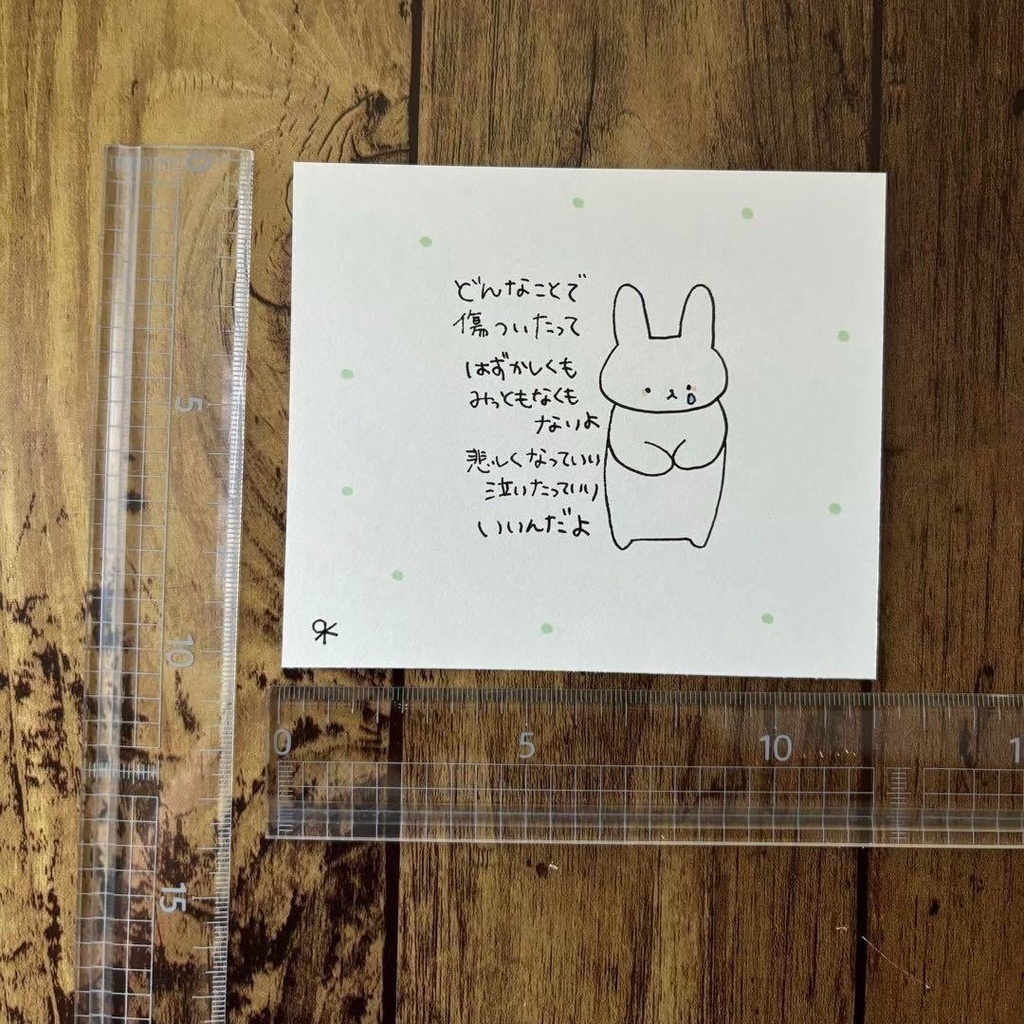 どんなことで
傷ついたって
はずかしくも
みっともなくも
ないよ
悲しくなっていい
泣いたっていい
いいんだよ
0
5
10
15
0 5 10 1